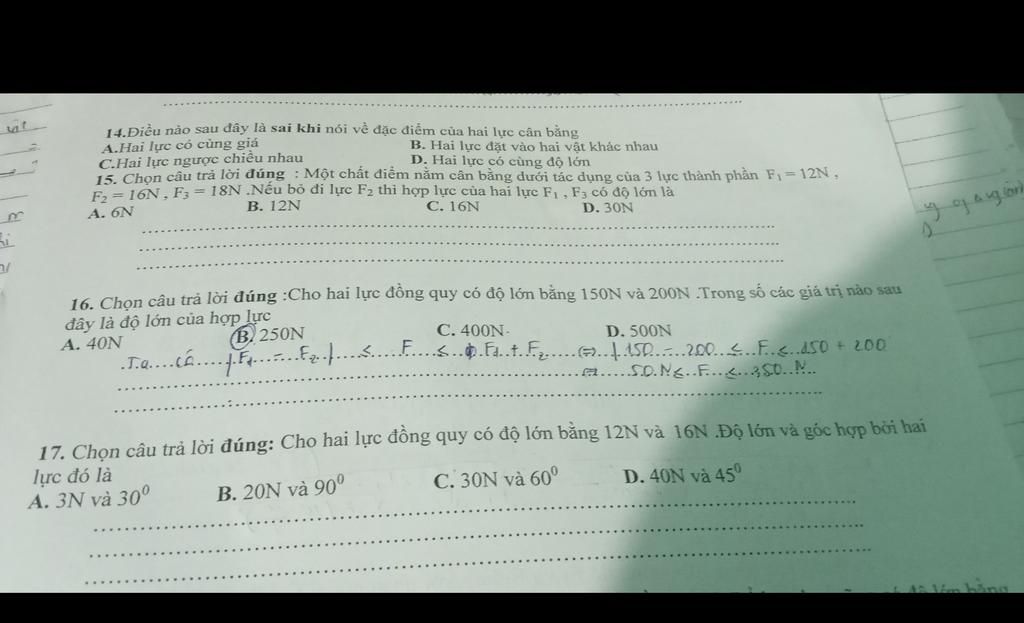 14.Điều nào sau đây là sai khi nói về đặc điểm của hai lực cân bằng
A.Hai lực có cùng giá B. Hai lực đặt vào hai vật khác nhau
C.Hai lực ngược chiều nhau D. Hai lực có cùng độ lớn
15. Chọn câu trả lời đúng : Một chất điểm nằm cân bằng dưới tác dụng của 3 lực thành phần F₁ = 12N ,
F₂ = 16N , F₃ = 18N .Nếu bỏ đi lực F₂ thì hợp lực của hai lực F₁ , F₃ có độ lớn là
A. 6N B. 12N C. 16N D. 30N
16. Chọn câu trả lời đúng :Cho hai lực đồng quy có độ lớn bằng 150N và 200N .Trong số các giá trị nào sau
đây là độ lớn của hợp lực
A. 40N B. 250N C. 400N D. 500N
Ta có |F₁ - F₂| ≤ F ≤ F₁ + F₂ ⇔ | 150 - 200 ≤ F ≤ 150 + 200
⇔ 50 N ≤ F ≤ 350 N
17. Chọn câu trả lời đúng: Cho hai lực đồng quy có độ lớn bằng 12N và 16N .Độ lớn và góc hợp bởi hai
lực đó là
A. 3N và 30⁰ B. 20N và 90⁰ C. 30N và 60⁰ D. 40N và 45⁰